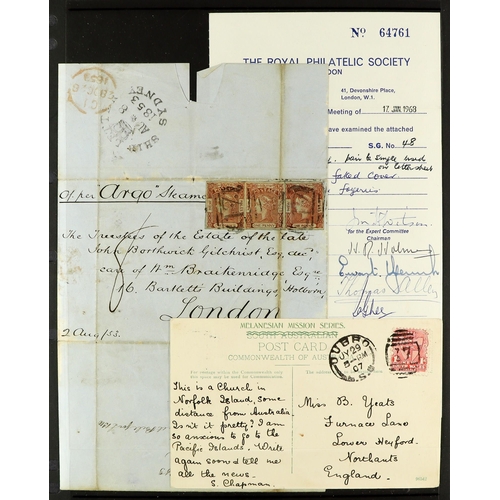 No 64761
THE ROYAL PHILATELIC SOCIETY
LONDON
41, Devonshire Place,
London, W.1.
Meeting of 17 JAN 1968
have examined the attached
S.G. No 48
pair & single used
on lettersheet
faked cover
forgeries
for the Expert Committee
Chairman
SHIP
SYDNEY
1853
pr per "Argo" Steamer
The Trustees of the Estate of the late
John Borthwick Gilchrist, Esq. dec.,
care of Wm Braikenridge Esqre
16, Bartletts Buildings, Holborn,
London
2 Aug/53.
MELANESIAN MISSION SERIES.
SOUTH AUSTRALIA
POST CARD
COMMONWEALTH OF AUS
DUBBO
JY 29
07
N.S.W
This is a Church in
Norfolk Island, some
distance from Australia.
Isn't it pretty? I am
so anxious to go to the
Pacific Islands. Write
again soon & tell me
all the news.
S. Chapman.
Miss B. Yeats
Furnace Lane
Lower Heyford.
Northants
England.